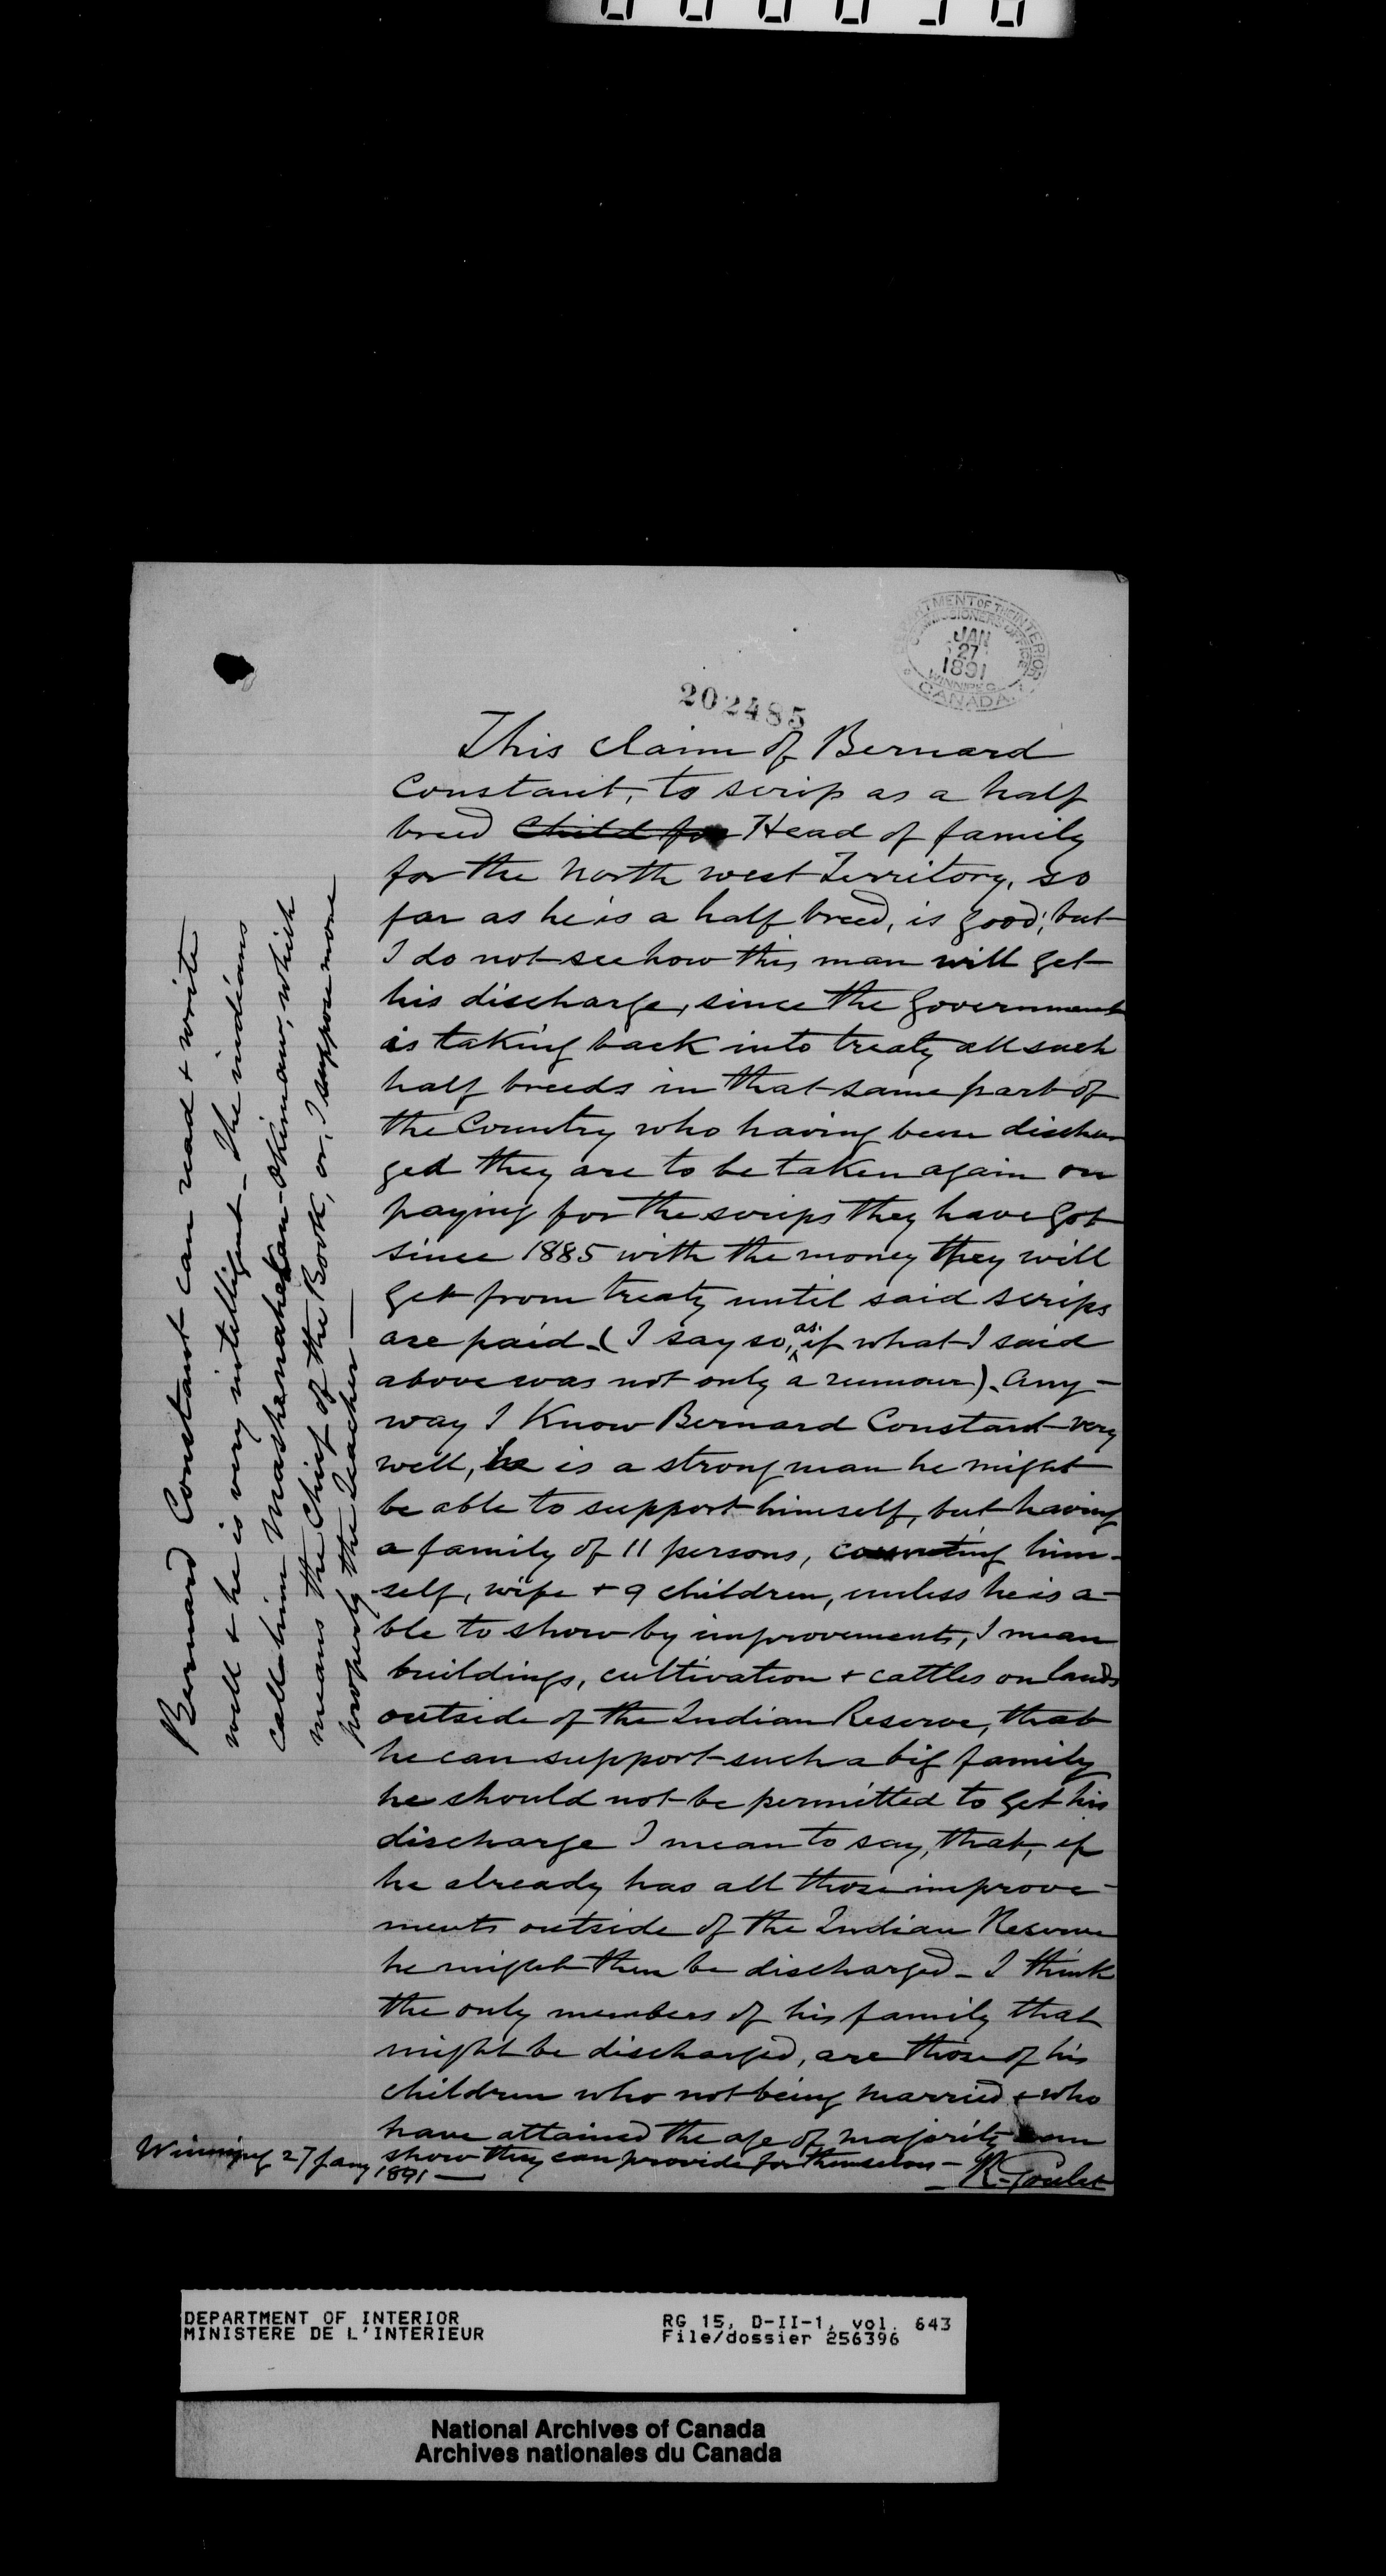 DEPARTMENT OF THE INTERIOR
COMMISSIONERS OFFICE
JAN
27
1891
WINNIPEG
CANADA
202485
This claim of Bernard
Constant, to scrip as a half
breed child for Head of family
for the North west Territory, so
far as he is a half breed, is good; but
I do not see how this man will get
his discharge, since the Government
is taking back into treaty all such
half breeds in that same part of
the Country who having been dischar
ged they are to be taken again on
paying for the scrips they have got
since 1885 with the money they will
get from treaty until said scrips
are paid. (I say so, as if what I said
above was not only a rumour). Any-
way I Know Bernard Constant very
well, he is a strong man he might
be able to support himself, but having
a family of 11 persons, counting him-
self, wife + 9 children, unless he is a-
ble to show by improvements, I mean
buildings, cultivation + cattles on lands
outside of the Indian Reserve, that
he can support such a big family
he should not be permitted to get his
discharge I mean to say, that, if
he already has all those improve-
ments outside of the Indian Reserve
he might then be discharged - I think
the only members of his family that
might be discharged, are those of his
children who not being married + who
have attained the age of majority can
show they can provide for themselves -
Winnipeg 27 Jany 1891 —
R. Goulet
Bernard Constant can read + write
well + he is very intelligent - The indians
call him Mashenahekan-Okimaw, which
means the Chief of the Book, or, I suppose more
properly the Teacher —
DEPARTMENT OF INTERIOR
MINISTERE DE L'INTERIEUR
RG 15, D-II-1, vol. 643
File/dossier 256396
National Archives of Canada
Archives nationales du Canada